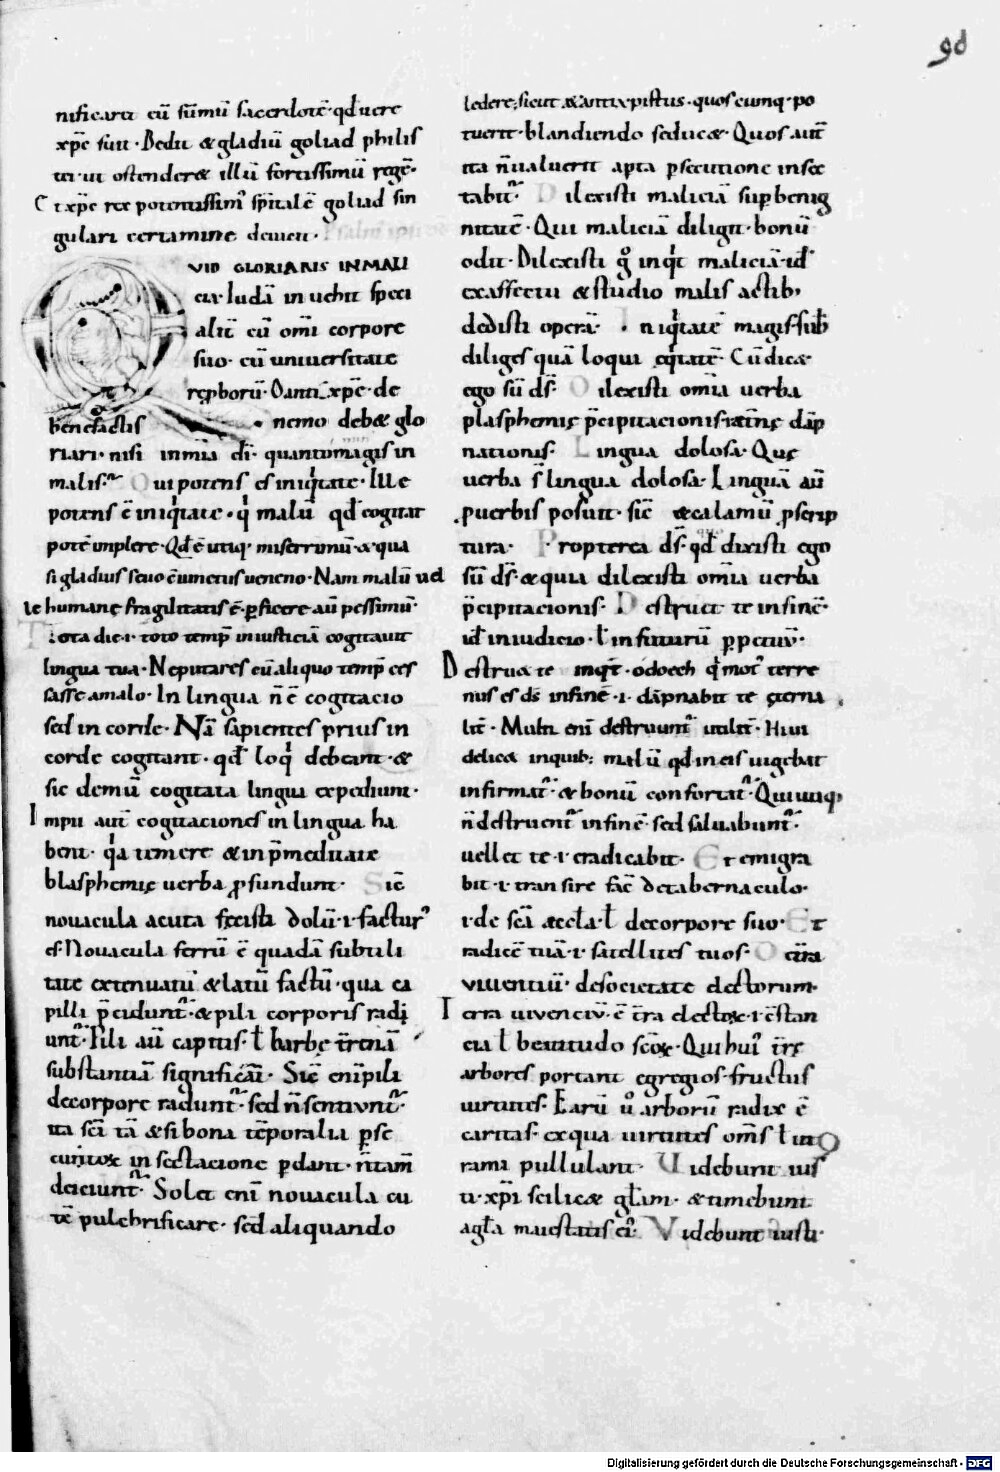 90
nificavit cū sūmū sacerdotē · qđ vere
xp̄e fuit · Dedit & gladiū goliad philis
tei · ut ostenderet illū fortissimū regē ·
Et xp̄c rex potentissim᷒ sp̄italē goliad sin
gulari certamine devicit ·
QVID GLORIARIS IN MALI
cia · Iudā invehit speci
alit̄ cū om̄i corpore
suo · cū universitate
reproborū · O antixp̄e · de
nemo debet glo
benefactis
riari · nisi in mīa dī · quantomagis in
malis · Qui potens es iniqtate · Ille
potens ē iniqtate · q malū qđ cogitat
potē implere · Qđ ē utiq · miserrimū · & qua
si gladius sevo ē unctus veneno · Nam malū vel
le humane fragilitatis ē · pficere aū pessimū ·
Tota die · i · toto temp̄ iniusticiā cogitavit
lingua tua · Ne putares eū aliquo temp̄ ces
sasse a malo · In lingua n̄ ē cogitacio
sed in corde · Nā sapientes prius in
corde cogitant · qđ loq debeant · &
sic demū cogitata lingua expediunt ·
Impii aut̄ cogitaciones in lingua ha
bent · qa temere & inp̄meditate
blasphemię verba pfundunt · Sic̄
novacula acuta fecisti dolū · i · factur᷒
es · Novacula ferrū ē quadā subtili
tate extenuatū & latū factū · qua ca
pilli p̄cidunt᷒ · & pili corporis radi
unt᷒ · Pili aū capitis · ł barbę t̄renā
substantiā significāt · Sic̄ enī pili
de corpore radunt᷒ · sed n̄ sentiunt᷒ ·
ita sc̄i tā & si bona tēporalia pse
in sectacione pdant · n̄ tam̄
deiciunt᷒ · Solet enī novacula cu
tē pulchrificare · sed aliquando
ledere; sicut & antixpistus · quoscumq · po
tuerit · blandiendo seducet · Quos aut̄
ita n̄ valuerit apta psecutione insec
tabit᷒ · Dilexisti maliciā sup benig
nitatē · Qui maliciā diligit · bonū
odit · Dilexisti g inqt maliciā · iđ
ex affectu & studio malis actib᷒
dedisti operā · Iniqtatē magis · sub
diliges quā loqui eqtatē · Cū dicet
ego sū ds̄ · Dilexisti om̄ia verba
plasphemię p̄cipitacionis · & ętnę dāp
nationis · Lingua dolosa · Quę
verba s̄ lingua dolosa · Linguā aū
puerbis posuit · sic̄ & calamū pscrip
tura · Propterea ds̄ · qđ dixisti ego
sū ds̄ · & quia dilexisti om̄ia verba
p̄cipitacionis · Destruet te in finē ·
iđ in iudicio · ł in futurū ppetuū ·
Destruet te inqt · o doech q mot᷒ terre
nus es ds̄ in finē · i · dāpnabit te ęterna
lit̄ · Multi enī destruunt᷒ utilit̄ · Huic
delicet inquib; malū qđ in eis vigebat
infirmat᷒ · & bonū confortat᷒ · Qui utiq
n̄ destruent᷒ in finē · sed salvabunt᷒ ·
vellet te · i · eradicabit · Et emigra
bit · i · transire faĉ de tabernaculo ·
i · de sc̄a eccła · ł de corpore suo · Et
radicē tuā · i · satellites tuos · O t̄ra
viventiū · de societate electorum ·
Terra viventiū · ē t̄ra electoꝝ · i · c̄stan
cia ł beatitudo sc̄oꝝ · Qui hui᷒ t̄rę
arbores portant egregios fructus
virtutes · Earū v̊ arborū radix ē
caritas · ex qua virtutes om̄s ł in
rami pullulant · Videbunt ius
ti · xp̄i scilicet głam · & timebunt
magła maiestatis ei᷒ · Videbunt iusti ·
Digitalisierung gefördert durch die Deutsche Forschungsgemeinschaft - DFG